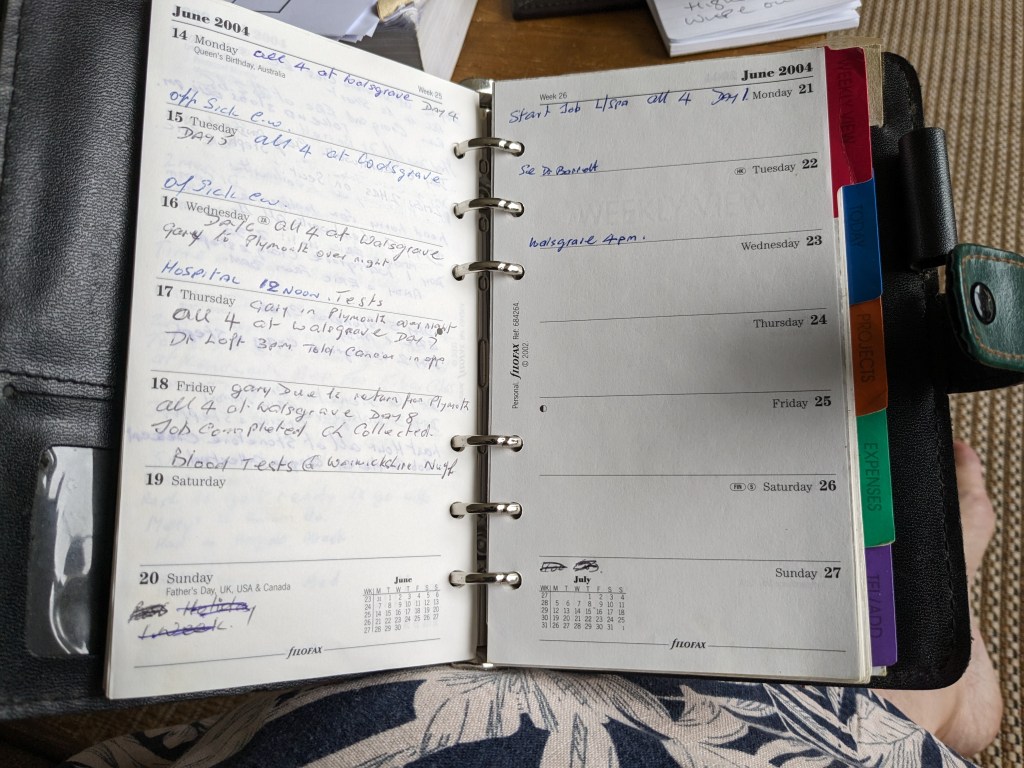 Wipe on
June 2004
14 Monday all 4 at Walsgrave DAY 4
Queen's Birthday, Australia
Week 25
off Sick C.W
15 Tuesday all 4 at Walsgrave
DAY 5
of Sick C.W.
16 Wednesday all 4 at Walsgrave
DAY 6
gary to Plymouth over night
HOSPITAL 12 NOON. Tests
17 Thursday Gary in Plymouth over night
all 4 at Walsgrave DAY 7
Dr Loft 3pm Told Cancer in
18 Friday gary Due to return from Plymouth
all 4 at Walsgrave DAY 8
Job Completed Ch Collected.
Blood Tests @ Warwickshire Nuff
19 Saturday
20 Sunday
Father's Day, UK, USA & Canada
Holiday
1 week.
June
WK M T W T F S S
23 1 2 3 4 5 6
24 7 8 9 10 11 12 13
25 14 15 16 17 18 19 20
26 21 22 23 24 25 26 27
27 28 29 30
filofax
June 2004
Week 26
Start Job L/Spa all 4 DAY 1. Monday 21
See Dr Barrett
HK Tuesday 22
Walsgrave 4pm.
Wednesday 23
Thursday 24
Friday 25
FIN S Saturday 26
Sunday 27
July
WK M T W T F S S
27 1 2 3 4
28 5 6 7 8 9 10 11
29 12 13 14 15 16 17 18
30 19 20 21 22 23 24 25
31 26 27 28 29 30 31
filofax
Personal. filofax Ref: 684264
© 2002.
WEEKLY VIEW
WEEKLY VIEW
TODAY
PROJECTS
EXPENSES
TEL/ADD